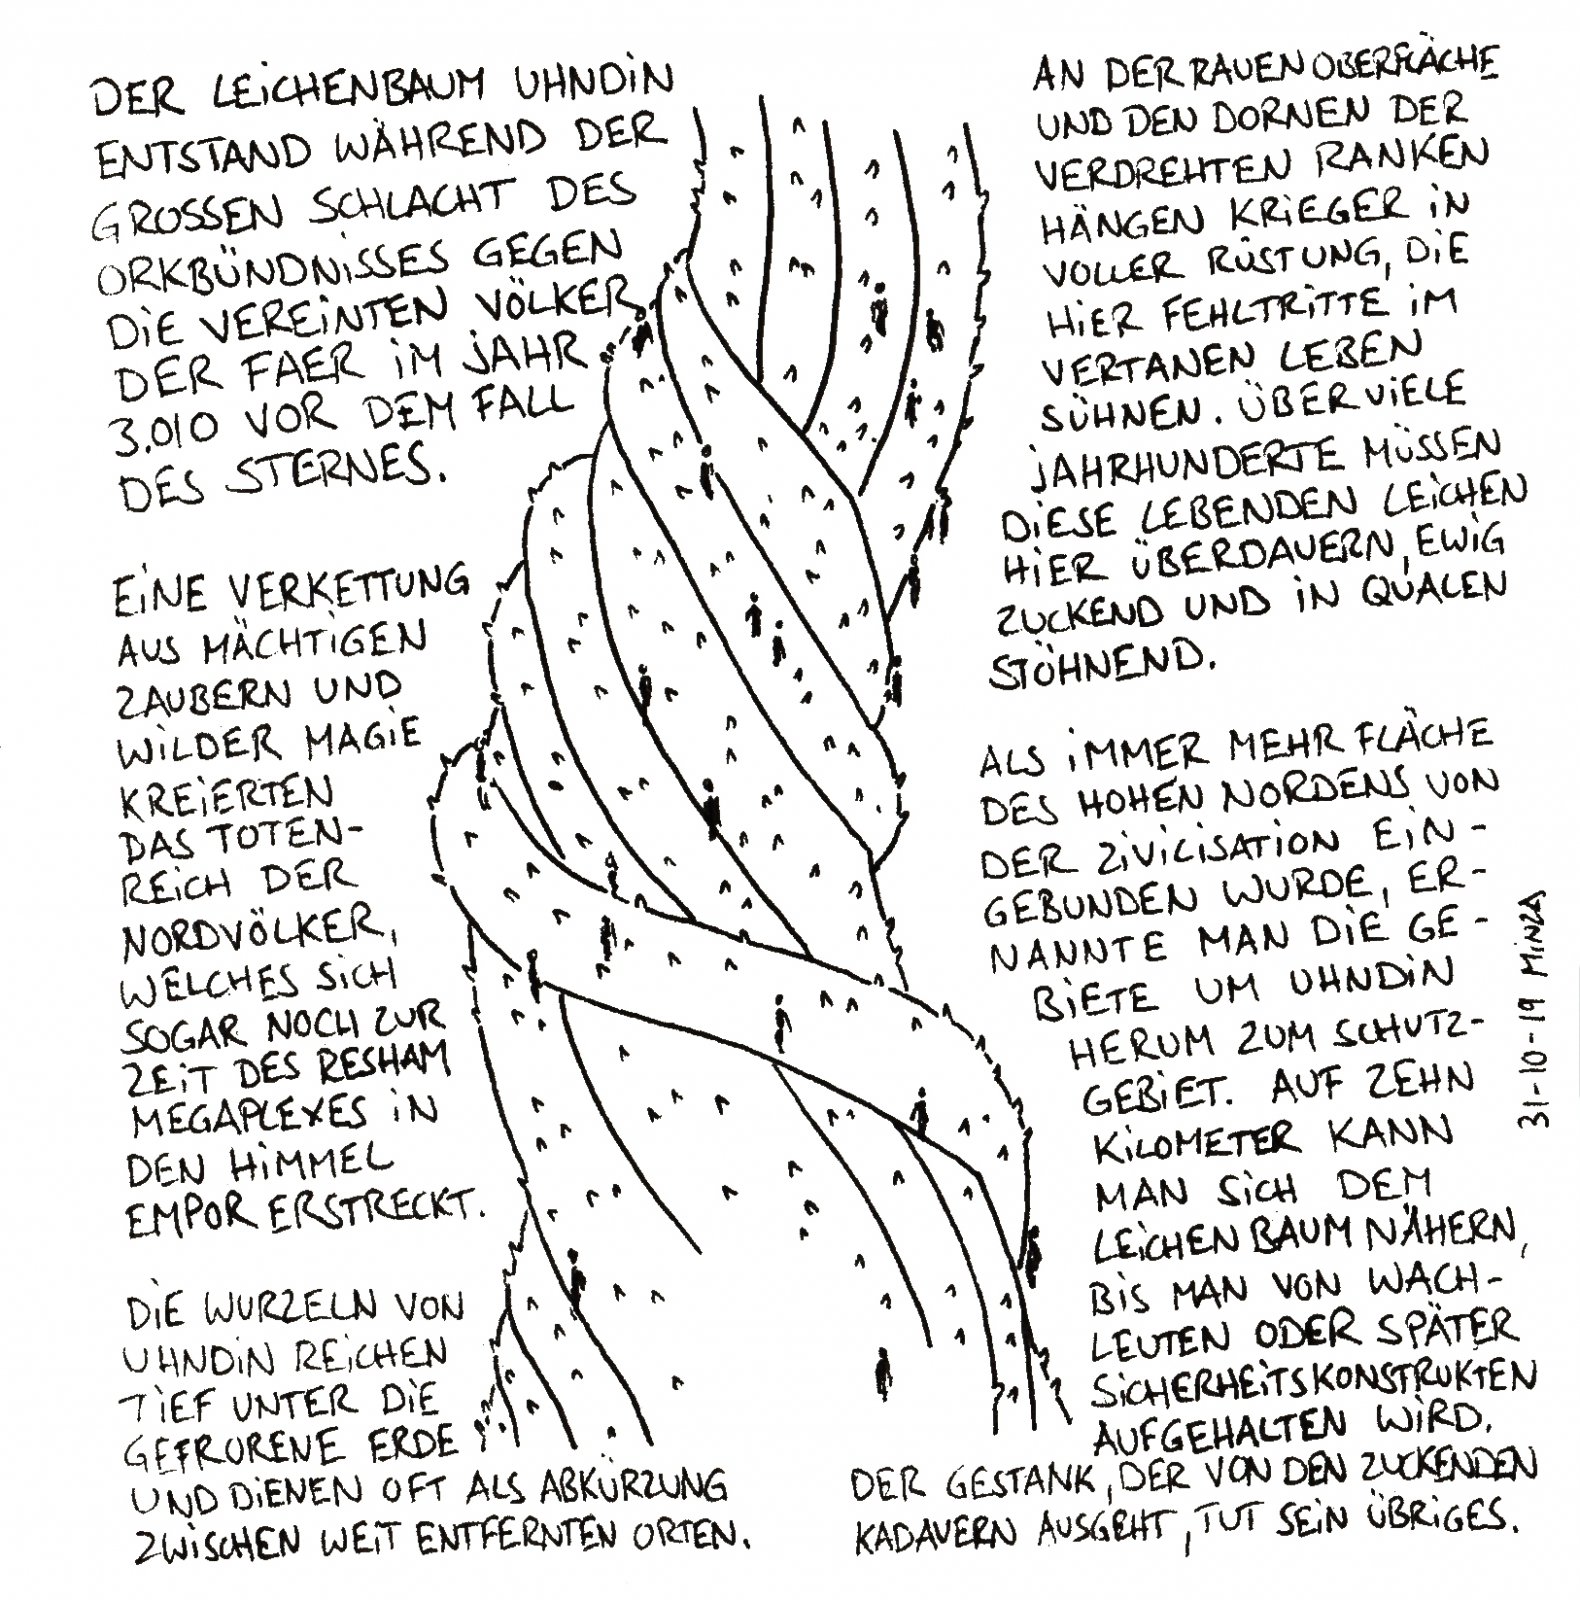 DER LEICHENBAUM UHNDIN
ENTSTAND WÄHREND DER
GROSSEN SCHLACHT DES
ORKBÜNDNISSES GEGEN
DIE VEREINTEN VÖLKER
DER FAER IM JAHR
3.010 VOR DEM FALL
DES STERNES.
EINE VERKETTUNG
AUS MÄCHTIGEN
ZAUBERN UND
WILDER MAGIE
KREIERTEN
DAS TOTEN-
REICH DER
NORDVÖLKER,
WELCHES SICH
SOGAR NOCH ZUR
ZEIT DES RESHAM
MEGAPLEXES IN
DEN HIMMEL
EMPOR ERSTRECKT.
DIE WURZELN VON
UHNDIN REICHEN
TIEF UNTER DIE
GEFRORENE ERDE
UND DIENEN OFT ALS ABKÜRZUNG
ZWISCHEN WEIT ENTFERNTEN ORTEN.
AN DER RAUEN OBERFLÄCHE
UND DEN DORNEN DER
VERDREHTEN RANKEN
HÄNGEN KRIEGER IN
VOLLER RÜSTUNG, DIE
HIER FEHLTRITTE IM
VERTANEN LEBEN
SÜHNEN. ÜBER VIELE
JAHRHUNDERTE MÜSSEN
DIESE LEBENDEN LEICHEN
HIER ÜBERDAUERN, EWIG
ZUCKEND UND IN QUALEN
STÖHNEND.
ALS IMMER MEHR FLÄCHE
DES HOHEN NORDENS VON
DER ZIVILISATION EIN-
GEBUNDEN WURDE, ER-
NANNTE MAN DIE GE-
BIETE UM UHNDIN
HERUM ZUM SCHUTZ-
GEBIET. AUF ZEHN
KILOMETER KANN
MAN SICH DEM
LEICHENBAUM NÄHERN,
BIS MAN VON WACH-
LEUTEN ODER SPÄTER
SICHERHEITSKONSTRUKTEN
AUFGEHALTEN WIRD.
DER GESTANK, DER VON DEN ZUCKENDEN
KADAVERN AUSGEHT, TUT SEIN ÜBRIGES.
31-10-19 MINZA